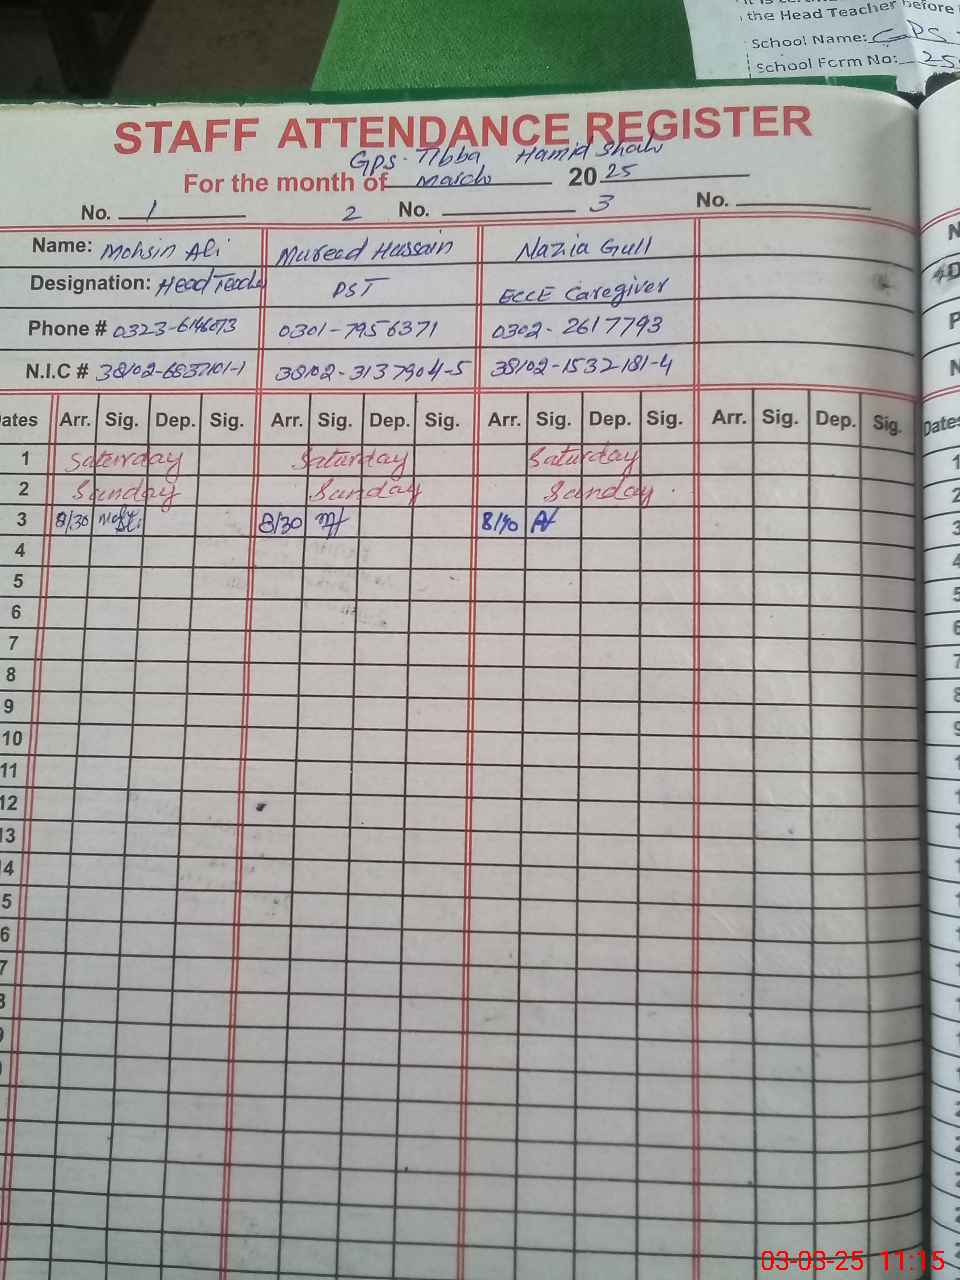 the Head Teacher before
School Name: GPS
School Form No: 25
STAFF ATTENDANCE REGISTER
GPS. Tibba Hamid Shah
For the month of March 2025
No. 1 2 No. 3 No.
Name: Mohsin Ali Mureed Hussain Nazia Gull
Designation: Head Teacher PST ECCE Caregiver
Phone # 0323-6146073 0301-7956371 0302-2617793
N.I.C # 38102-6837101-1 38102-3137904-5 38102-1532181-4
Dates Arr. Sig. Dep. Sig. Arr. Sig. Dep. Sig. Arr. Sig. Dep. Sig. Arr. Sig. Dep. Sig. Dates
1 Saturday Saturday Saturday
2 Sunday Sunday Sunday
3 8/30 8/30 8/30
4
5
6
7
8
9
10
11
12
13
14
5
6
7
8
03-03-25 11:15